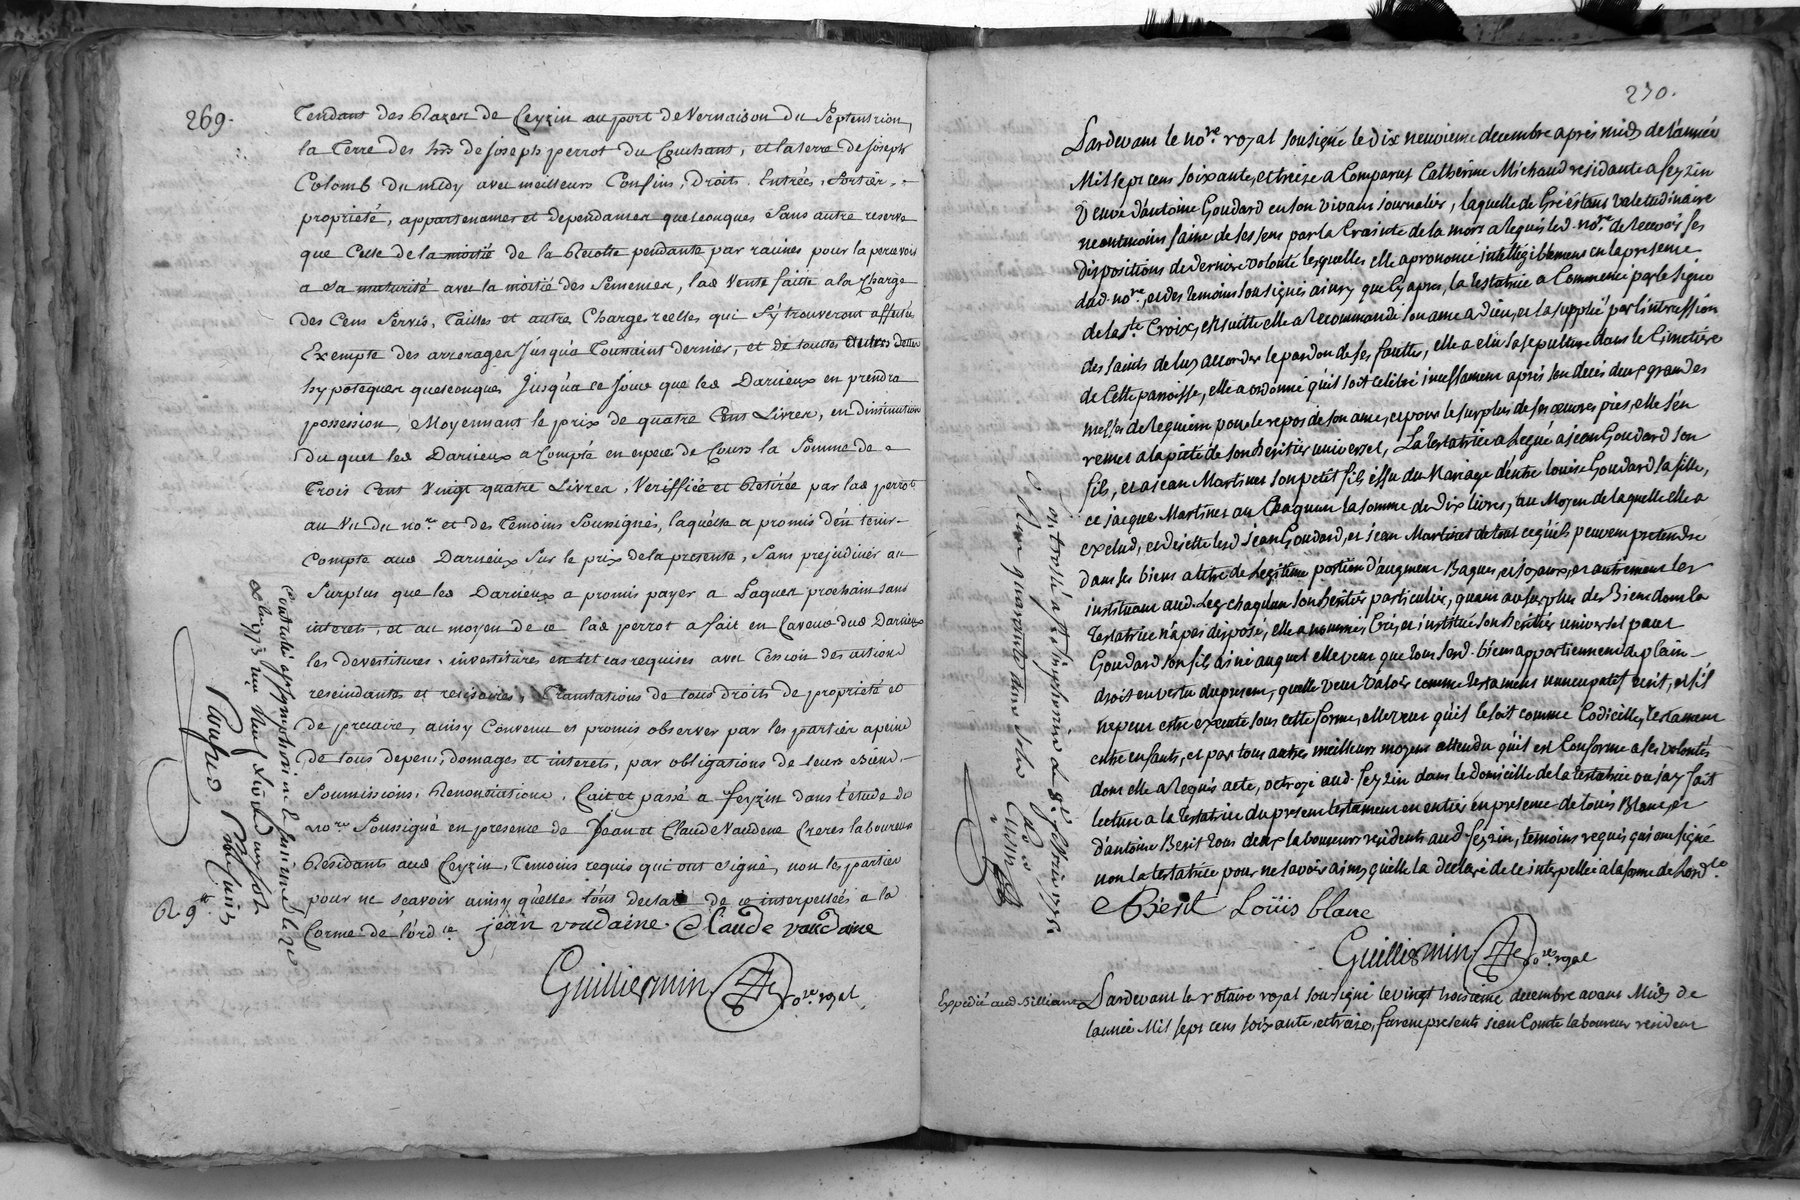 269.
Tendant des Razes de Feyzin au port de Vernaison du Septentrion,
la Terre des hrs de joseph perrot du Couchant, et la terre de joseph
Colomb du midy avec meilleurs Confins, Droits, Entrées, Sorties,
proprieté, appartenances et dependances quesconques Sans autre reserve
que Celle de la moitié de la Recolte pendante par racines pour la percevoir
a sa maturité avec la moitié des Semences, lad Vente faitte a la Charge
des Cens Servis, Tailles et autre Charge reelles qui S'y trouveront affectés
Exempte des arrerages Jusqu'a Toussaint dernier, et de toutes autres dettes
hypoteques quesconques Jusqu'a ce jour que led Darcieux en prendra
possession, Moyennant le prix de quatre Cent Livres, en diminution
du quel led Darcieux a Compté en especes de Cours la Somme de
Trois Cent Vingt quatre Livres, Veriffiée et Retirée par lad perrot
au Vu du nore et des Temoins Soussignés, laquelle a promis d'en tenir
Compte aud Darcieux Sur le prix de la presente, Sans prejudicier au
Surplus que led Darcieux a promis payer a Paques prochain sans
interets, et au moyen de ce lad perrot a fait en faveur dud Darcieux
les devestitures, investitures en tel cas requises avec Cession des actions
rescindantes et rescisoires, Translations de tous droits de proprieté et
de precaire, ainsy Convenu et promis observer par les parties a peine
de tous depens, domages et interets, par obligations de leurs Biens,
Soumissions, Renonciations, fait et passé a feyzin dans l'etude du
nore Soussigné en presence de Jean et Claude Vaudene freres laboureurs
Residant aud feyzin, Temoins requis qui ont signé, non les parties
pour ne Scavoir ainsy qu'elles l'ont declaré de ce interpellées a la
forme de l'ordce jean voudaine Claude vaudaine
Guilliermin nore royal
Controllé a St Symphorien
R 9 tt
270.
Pardevant le nore royal sousigné le dix neuvieme decembre après midy de l'année
Mil sept cens soixante et treise a Comparut Catherine Michaud residante a feyzin
Veuve d'antoine Goudard en son vivant journalier, laquelle de Gré êtant valetudinaire
neantmoins saine de ses sens par la Crainte de la mort a Requis led. nore de recevoir ses
dispositions de derniere volonté lesquelles elle a prononcé intelligiblement en la presence
dud. nore, et des temoins sousignés ainsy que cy apres, la testatrice a Commencé par le signe
de la ste Croix, ensuitte elle a recommandé son ame a dieu, et la supplié par l'intercession
des saints de luy accorder le pardon de ses fauttes, elle a elu sa sepulture dans le Cimetiere
de Cette paroisse, elle a ordonné qu'il soit celebré incessament après son decès deux grandes
messes de Requiem pour le repos de son ame, et pour le surplus de ses œuvres pies, elle s'en
remet a la pieté de son heritier universel, La testatrice a Legué a jean Goudard son
fils, et a jean Martinet son petit fils issu du Mariage d'entre louise Goudard sa fille,
et jacque Martinet au Chaquun la somme de dix livres, au Moyen de laquelle elle a
exclud, et dejetté lesd jean Goudard, et jean Martinet de tout ce qu'ils peuvent pretendre
dans ses biens a titre de legitime portion d'augment Bagues, et joyaux, et autrement les
instituant aud. Leg chaquun son heritier particulier, quant au surplus des Biens dont la
testatrice n'a pas disposé, elle a nommé, Créé, et institué son heritier universel paul
Goudard son fils ainé auquel elle veut que tous sesd. biens appartiennent de plein
droit en vertu du present, qu'elle veut valoir comme testament nuncupatif ecrit, et s'il
ne peut estre executé sous cette forme, elle veut qu'il le soit comme Codicille, testament
entre enfants, et par tous autres meilleurs moyens attendu qu'il est Conforme a ses volontés
dont elle a Requis acte, octroyé aud. feyzin dans le domicille de la testatrice ou j'ay fait
lecture a la testatrice du present testament en entier en presence de louis Blanc, et
d'antoine Besit tous deux laboureurs residents aud. feyzin, temoins requis qui ont signé
non la testatrice pour ne savoir ainsy qu'elle la declaré de ce interpellée a la forme de l'ordce
A Besit Loüis blanc
Guilliermin nore royal
Expedié aud
Pardevant le notaire royal sousigné le vingt troisieme decembre avant Midy de
l'année Mil sept cens soixante et treise, furent presents jean Comte laboureur resident